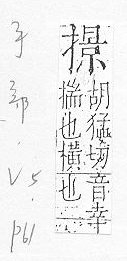 撔
胡猛切音幸
揣也橫也
手部.V5.p61